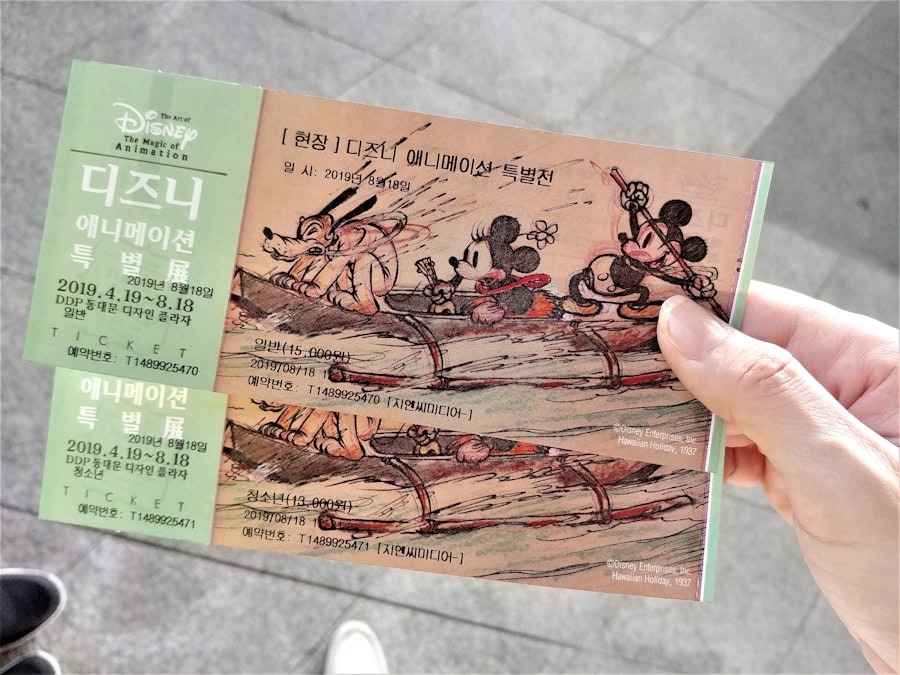 The Art of
DISNEY
The Magic of
Animation
디즈니
애니메이션
특별展
2019년 8월18일
2019.4.19~8.18
DDP 동대문 디자인 플라자
일반
TICKET
예약번호: T1489925470
[ 현장 ] 디즈니 애니메이션 특별전
일 시: 2019년 8월18일
일반(15,000원)
2019/08/18 1
예약번호: T1489925470 [지엔씨미디어-]
©Disney Enterprises, Inc.
Hawaiian Holiday, 1937
애니메이션
특별展
2019년 8월18일
2019.4.19~8.18
DDP 동대문 디자인 플라자
청소년
TICKET
예약번호: T1489925471
청소년(13,000원)
2019/08/18 1
예약번호: T1489925471 [지엔씨미디어-]
©Disney Enterprises, Inc.
Hawaiian Holiday, 1937